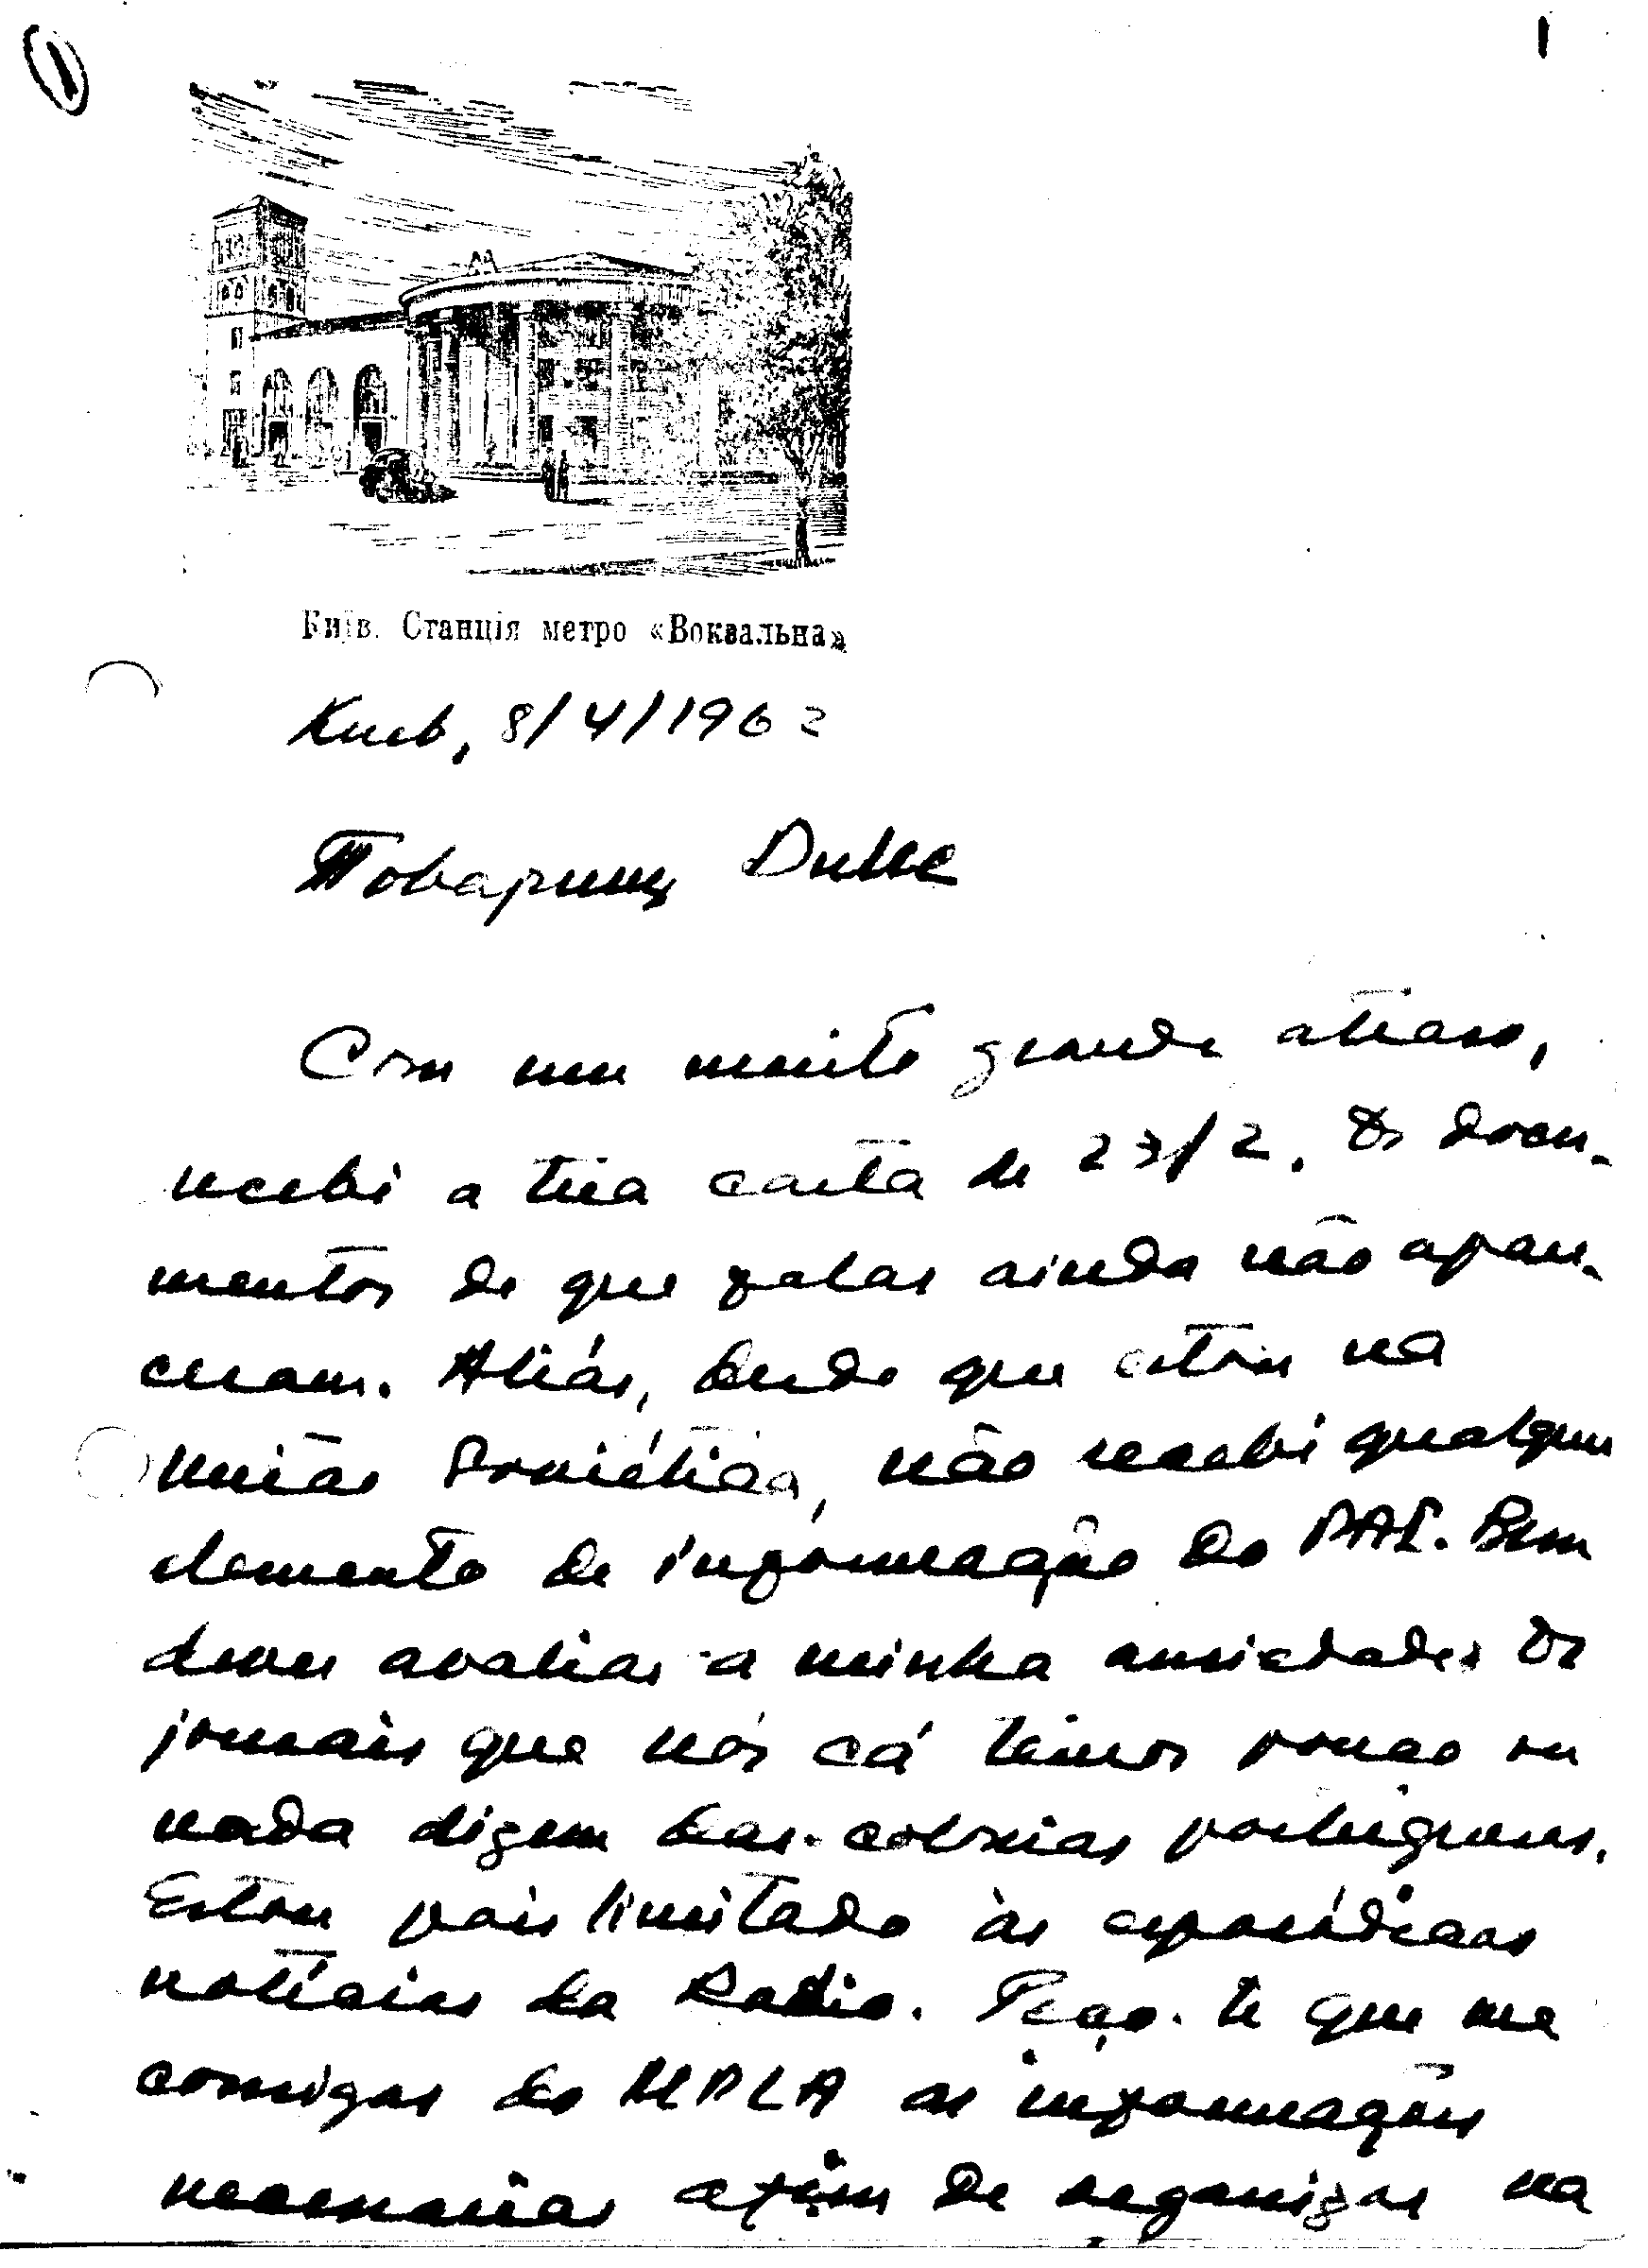 1
1
Київ. Станція метро «Вокзальна»
Киев, 8/4/1962
Товарищ Dilke
Com um muito grande atraso,
recebi a tua carta de 23/2. Os docu-
mentos de que falas ainda não apare-
ceram. Aliás, desde que estou na
União Soviética, não recebi qualquer
elemento de informação do PAI. Bem
deves avaliar a minha ansiedade. Os
jornais que nós cá temos pouco ou
nada dizem das colonias portuguesas.
Estou pois limitado às esporádicas
notícias da Radio. Peço-te que me
consigas do MPLA as informações
necessarias afim de organizar na